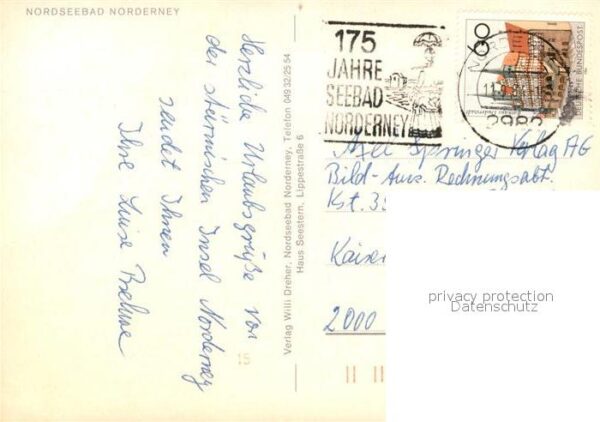 NORDSEEBAD NORDERNEY
Herzliche Urlaubsgrüße von
der stürmischen Insel Norderney
sendet Ihnen
Ihre Luise Boehme
15
Verlag Willi Dreher, Nordseebad Norderney, Telefon 04932/2554
Haus Seestern, Lippestraße 6
175
JAHRE
SEEBAD
NORDERNEY
60
DEUTSCHE BUNDESPOST
NORD
Axel Springer Verlag AG
Bild-Ausw. Rechnungsabt.
Kst. 35
Kaiser
2000
privacy protection
Datenschutz